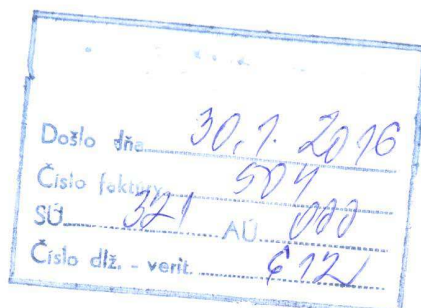 Došlo dňa 30.1.2016
Číslo faktúry 504
SÚ 321 AÚ 000
Číslo dlž. - verit.